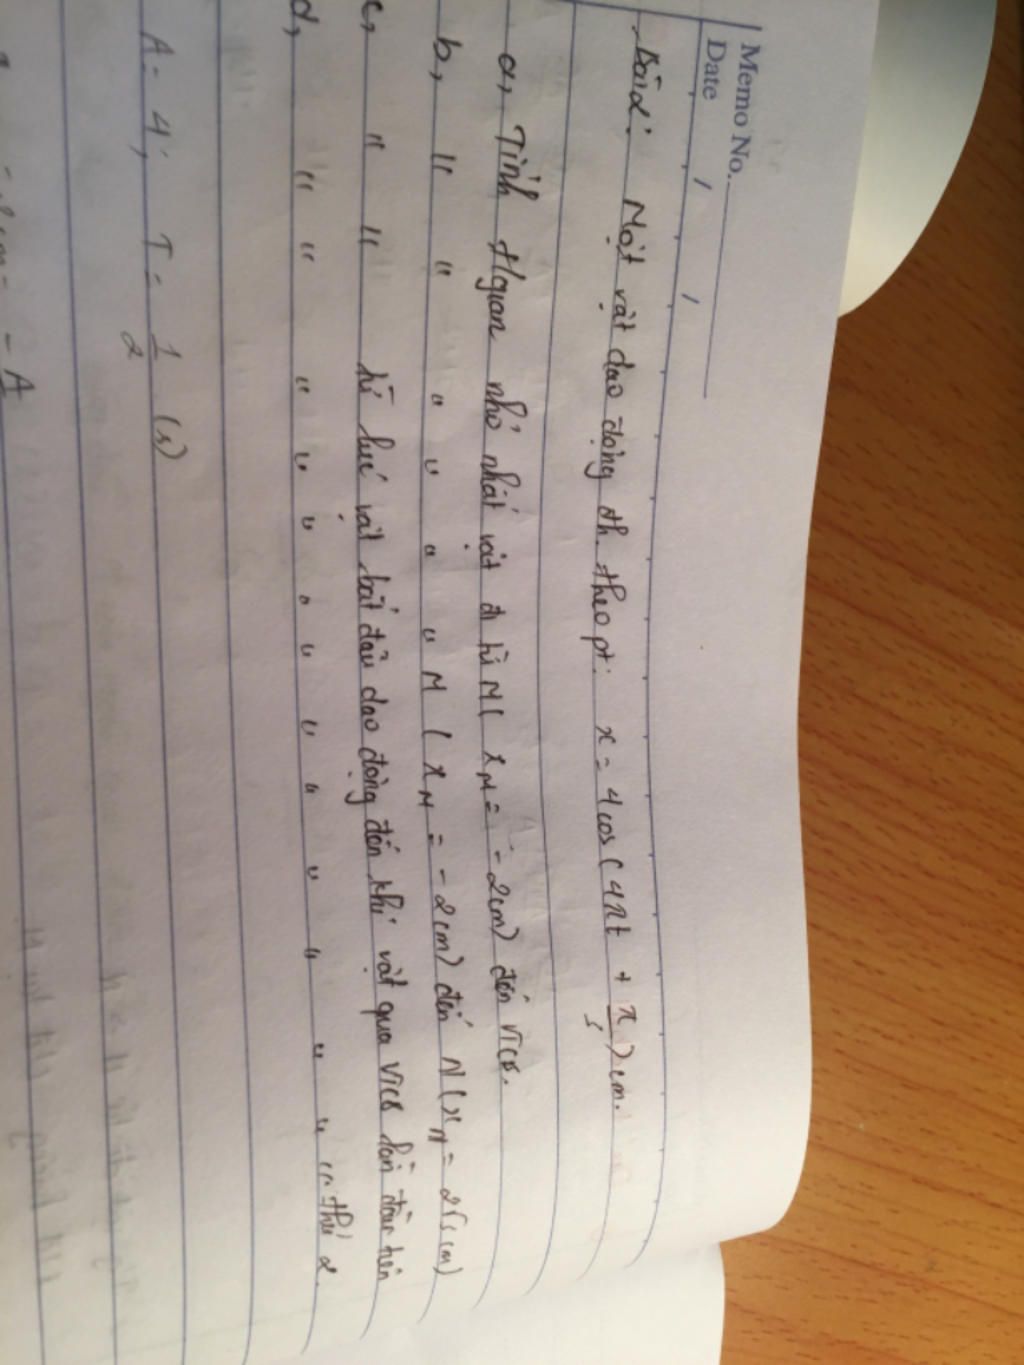 Memo No.
Date / /
Bài 2: Một vật dao động đh. theo pt: x = 4cos(4πt + π/5) cm.
a, Tính tgian nhỏ nhất vật đi từ M( xM = -2cm) đến VTCB.
b, " " " " " " M ( xM = -2cm) đến N(xN = 2√3 cm)
c, " " từ lúc vật bắt đầu dao động đến khi vật qua VTCB lần đầu tiên
d, " " " " " " " " " " " " " " thứ 2.
A = 4; T = 1/2 (s)
- A